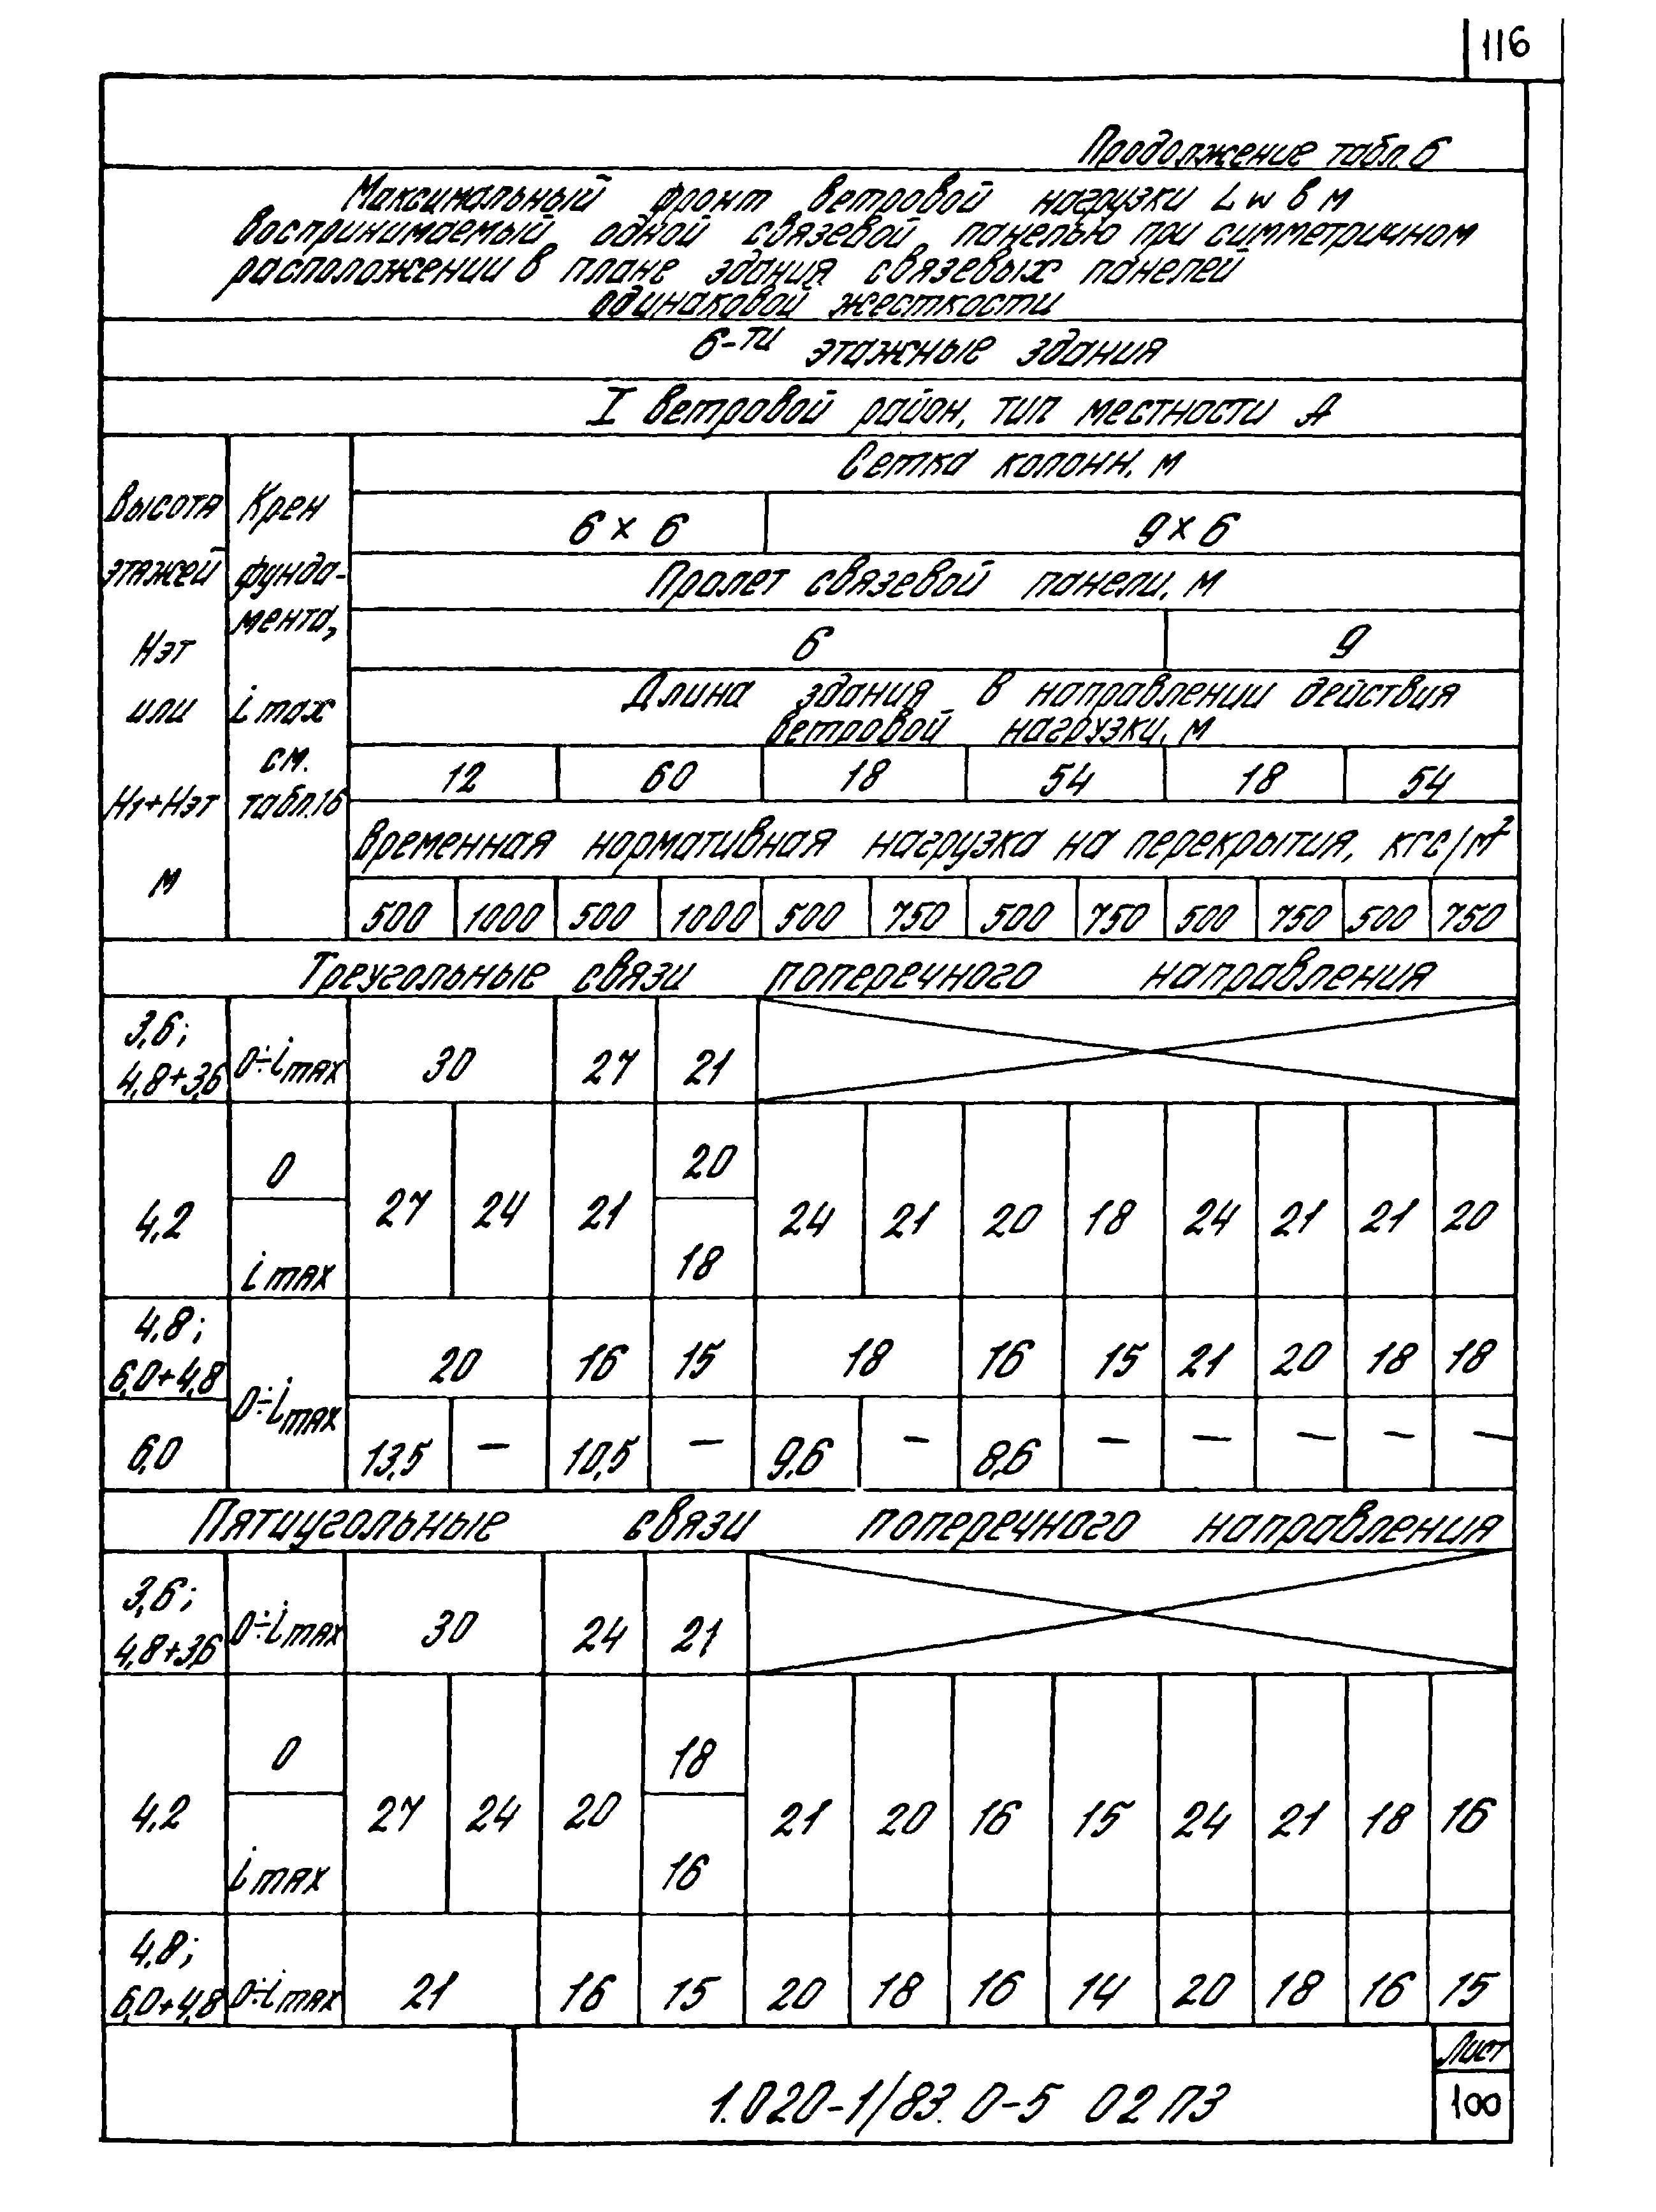 116
Продолжение табл. 6
Максимальный фронт ветровой нагрузки Lw в м
воспринимаемый одной связевой панелью при симметричном
расположении в плане здания связевых панелей
одинаковой жесткости
6-ти этажные здания
I ветровой район, тип местности А
Высота этажей Нэт или Н1+Нэт м
Крен фунда-мента, i max см. табл.16
Сетка колонн, м
6 х 6 9 х 6
Пролет связевой панели, м
6 9
Длина здания в направлении действия
ветровой нагрузки, м
12 60 18 54 18 54
Временная нормативная нагрузка на перекрытия, кгс/м²
500 1000 500 1000 500 750 500 750 500 750 500 750
Треугольные связи поперечного направления
3,6;
4,8+3,6 0÷imax 30 27 21
0 20
4,2 27 24 21 24 21 20 18 24 21 21 20
imax 18
4,8;
6,0+4,8 20 16 15 18 16 15 21 20 18 18
0÷imax
6,0 13,5 – 10,5 – 9,6 – 8,6 – – – – –
Пятиугольные связи поперечного направления
3,6;
4,8+3,6 0÷imax 30 24 21
0 18
4,2 27 24 20 21 20 16 15 24 21 18 16
imax 16
4,8;
6,0+4,8 0÷imax 21 16 15 20 18 16 14 20 18 16 15
Лист
1.020-1/83. 0-5 02 ПЗ 100